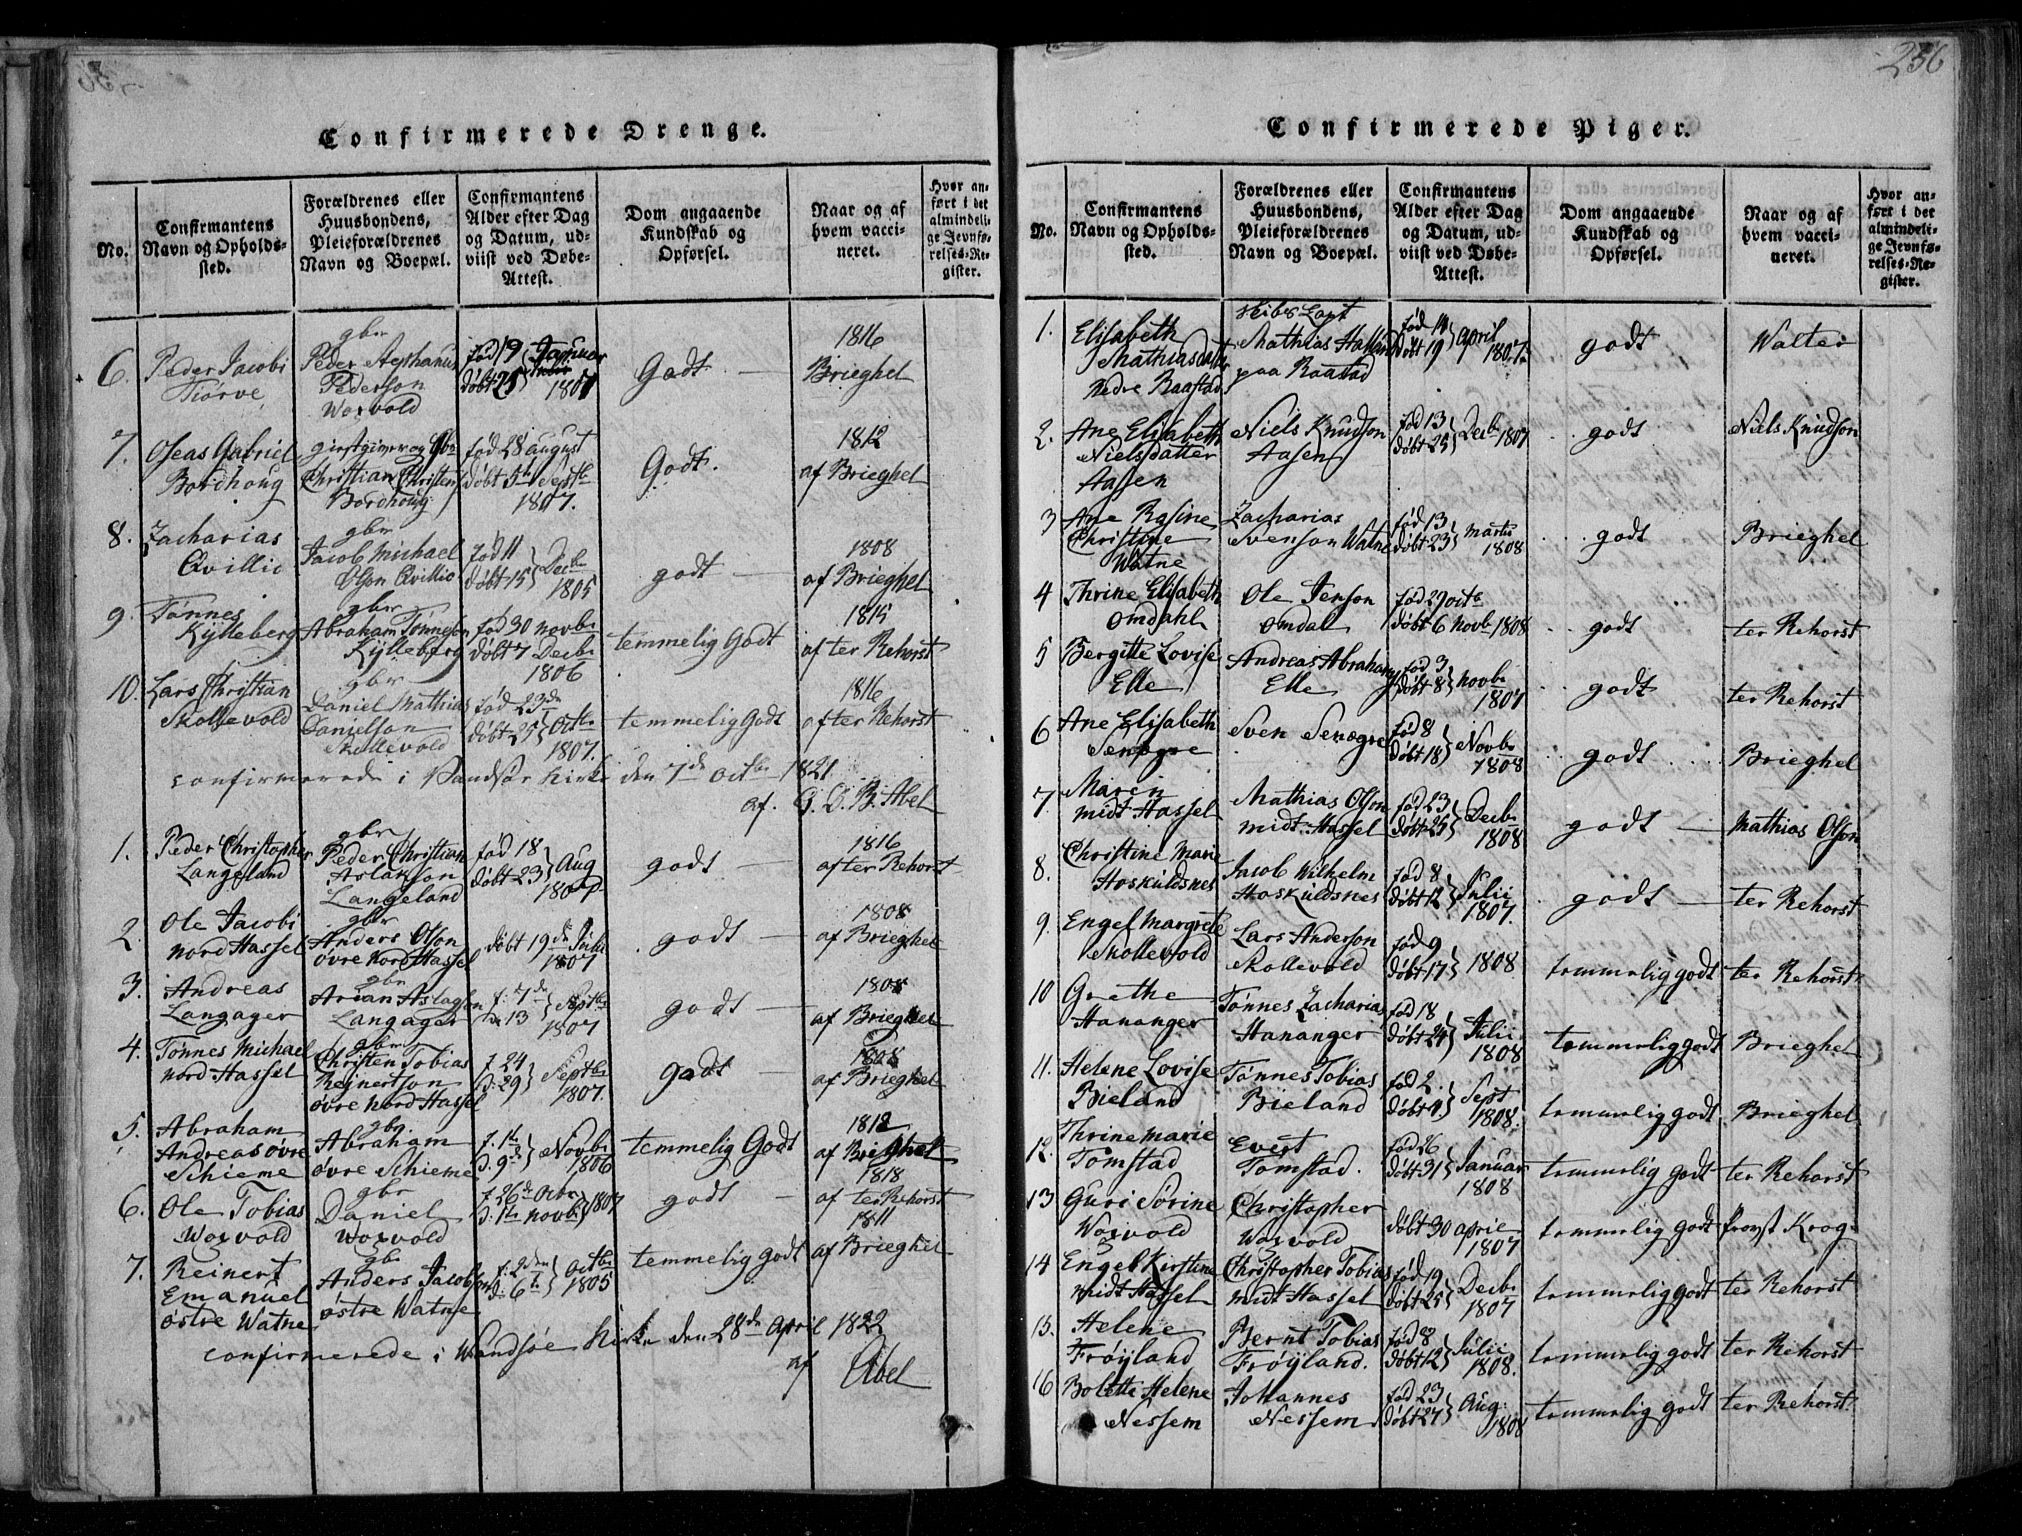 236
Confirmerede Drenge.
No.
Confirmantens
Navn og Opholds-
sted.
Forældrenes eller
Huusbondens,
Pleieforældrenes
Navn og Boepæl.
Confirmantens
Alder efter Dag
og Datum, ud-
viist ved Døbe-
Attest.
Dom angaaende
Kundskab og
Opførsel.
Naar og af
hvem vacci-
neret.
Hvor an-
ført i det
almindeli-
ge Jevnfø-
relses-Re-
gister.
6.
Peder Jacobi
Tiörve
gbr
Peder Stephanus
Pederson
Woxvold
fød 19 Januar
døbt 25
1807
Godt
1816
Brieghel
7.
Oseas Gabriel
Bordhoug
giestgiver og Gbr
Christian Christen
Bordhoug
fød 28 august
døbt Septbr
1807.
Godt.
1812
af Brieghel
8.
Zacharias
Qvillio
gbr
Jacob Michael
Olson Qvillio
fød 11
døbt 15 Decbr
1805
godt
1808
af Brieghel
9.
Tönnes
Kylleberg
gbr
Abraham Tönneson
Kylleberg
fød 30 novbr
døbt 7 Decbr
1806
temmelig Godt
1815
af ter Rehorst
10.
Lars Christian
Skollevold
gbr
Daniel Mathias
Danielson
Skollevold
fød 23de
døbt 25 Octbr
1807.
temmelig Godt
1816
af ter Rehorst
confirmerede i Vandsöe kirke den 7de Octbr 1821
af. D. B. Abel
1.
Peder Christopher
Langeland
gbr
Peder Christian
Aslakson
Langeland
fød 18
døbt 23 Aug
godt
1816
af ter Rehorst
2.
Ole Jacobi
nord Hassel
gbr
Anders Olson
övre Nord Hassel
döbt 19de Julii
1807
godt
1808
af Brieghel
3.
Andreas
Langager
gbr
Arian Aslagson
Langager
f. 7de
13 Septbr
1807
godt
1808
af Brieghel
4.
Tönnes Michael
nord Hassel
gbr
Christen Tobias
Reinertson
övre Nord Hassel
f. 24
D: 29 Septbr
1807.
godt
1808
af Brieghel
5.
Abraham
Andreas övre
Schieme
gbr.
Abraham
övre Schieme
f. 1te
D. 9de Novbr
1806
temmelig Godt
1812
af Brieghel
6.
Ole Tobias
Woxvold
gbr
Daniel
Woxvold
f. 26de Octbr
D: 1te novbr 1807
godt
1818
af ter Rehorst
7.
Reinert
Emanuel
östre Watne
gbr
Anders Jacobson
östre Watne
f: 2den
D: 6te Octbr
1805
temmelig godt
1811
af Brieghel
confirmerede i Wandsöe Kirke den 28de April 1822
af Abel
Confirmerede Piger.
No.
Confirmantens
Navn og Opholds-
sted.
Forældrenes eller
Huusbondens,
Pleieforældrenes
Navn og Boepæl.
Confirmantens
Alder efter Dag
og Datum, ud-
viist ved Døbe-
Attest.
Dom angaaende
Kundskab og
Opførsel.
Naar og af
hvem vacci-
neret.
Hvor an-
ført i det
almindeli-
ge Jevnfø-
relses-Re-
gister.
1.
Elisabeth
Mathiasdatter
Nedre Raastad
skibs Capt
Mathias Hassel
paa Raastad
fød 14
døbt 19 April
1807.
godt
Walter
2.
Ane Elisabeth
Nielsdatter
Aasen
Niels Knudson
Aasen
fød 13
døbt 25 Decbr 1807
godt
Niels Knudson
3
Ane Rasine
Christine
Watne
Zacharias
Svenson Watne
fød 13
døbt 23 Marts
1808
godt
Brieghel
4
Thrine Elisabeth
Omdahl
Ole Jenson
Omdal
fød 29 octbr
döbt 6 Novbr 1808
godt
ter Rehorst
5
Bergitte Lovise
Elle
Andreas Abrahams
Elle
fød 3
döbt 8 novbr
1807
godt
ter Rehorst
6
Ane Elisabeth
Senögre
Sven Senögre
fød 8
döbt 18 Novbr
1808
godt
Brieghel
7.
Maren
midt Hassel
Mathias Olson
midt Hassel
fød 23
döbt 25 Decbr
1808
godt
Mathias Olson
8.
Christine Marie
Hoskuldsnes
Jacob Wilhelm
Hoskuldsnes
fød 8
döbt 12 Julii
1807.
godt
ter Rehorst
9.
Engel Margrete
Skollevold
Lars Anderson
Skollevold
fød 9
döbt 17 1808
temmelig godt
ter Rehorst
10
Grethe
Hananger
Tönnes Zacharias
Hananger
fød 18
döbt 24 Julii
1808
temmelig godt
Brieghel
11.
Helene Lovise
Bieland
Tönnes Tobias
Bieland
fød 2
döbt Sept
1808.
temmelig godt
Brieghel
12.
Thrine Marie
Tomstad
Evert
Tomstad.
fød 26
döbt 31 Januar
1808
temmelig godt
ter Rehorst
13
Guri Sörine
Woxvold
Christopher
Woxvold
döbt 30 april
1807
temmelig godt
Provst Krog
14
Engel Kirstine
midt Hassel
Christopher Tobias
midt Hassel
fød 19
döbt 25 Decbr
1807
temmelig godt
ter Rehorst
15.
Helene
Fröyland
Bernt Tobias
Fröyland.
fød 8
döbt 12 Julii
1808.
temmelig godt
ter Rehorst
16
Bolette Helene
Nessem
Johannes
Nessem
fød 23
döbt 27 Aug:
1808
temmelig godt
ter Rehorst